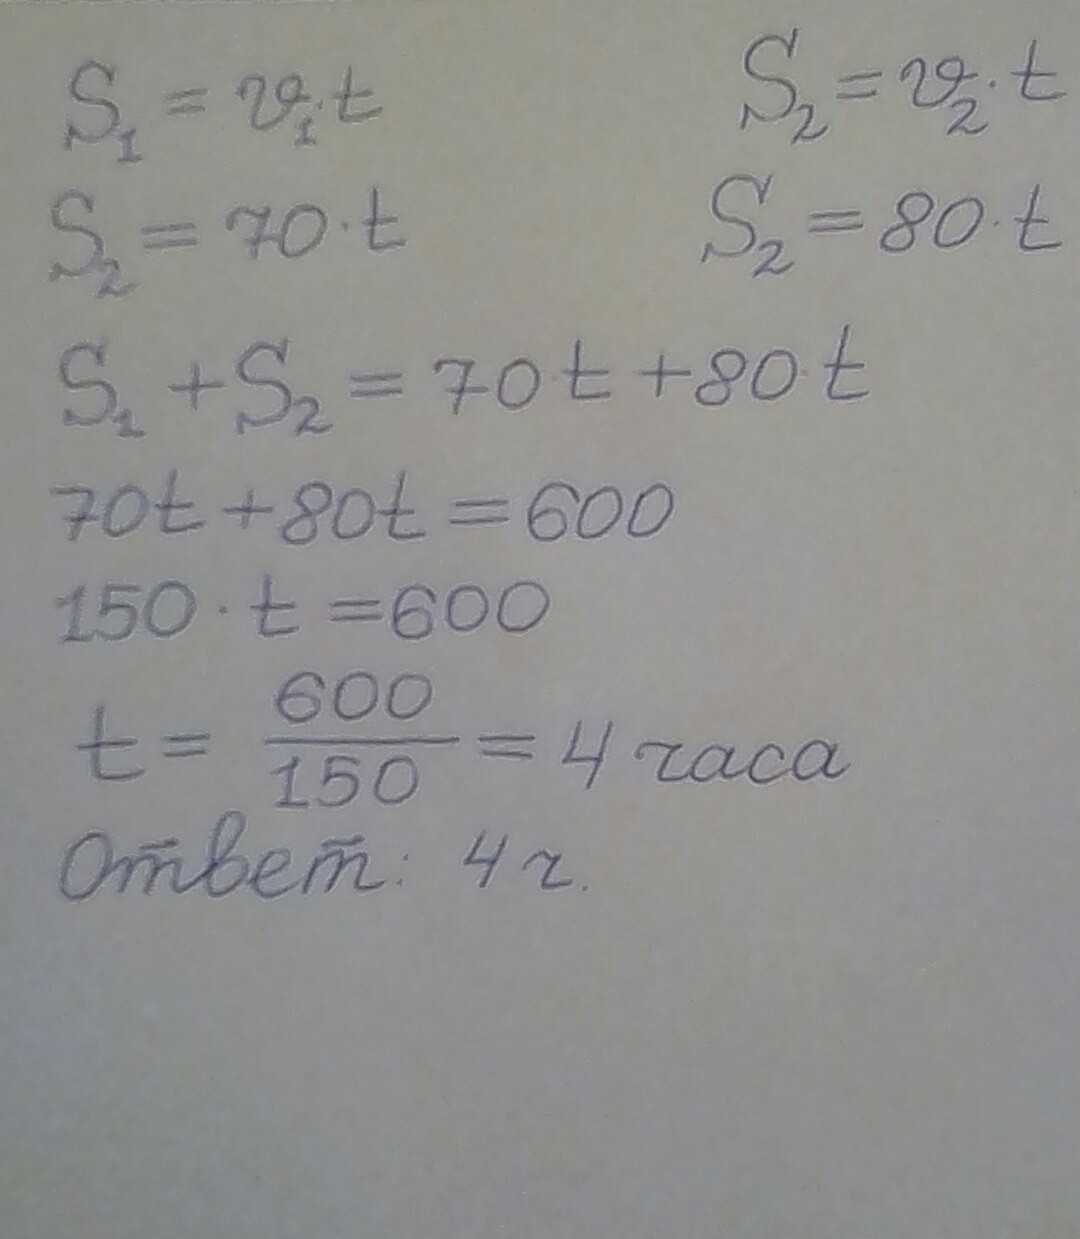 S₁ = υ₁·t S₂ = υ₂·t
S₂ = 70·t S₂ = 80·t
S₁ + S₂ = 70·t + 80·t
70t + 80t = 600
150·t = 600
t = 600/150 = 4 часа
Ответ: 4 ч.